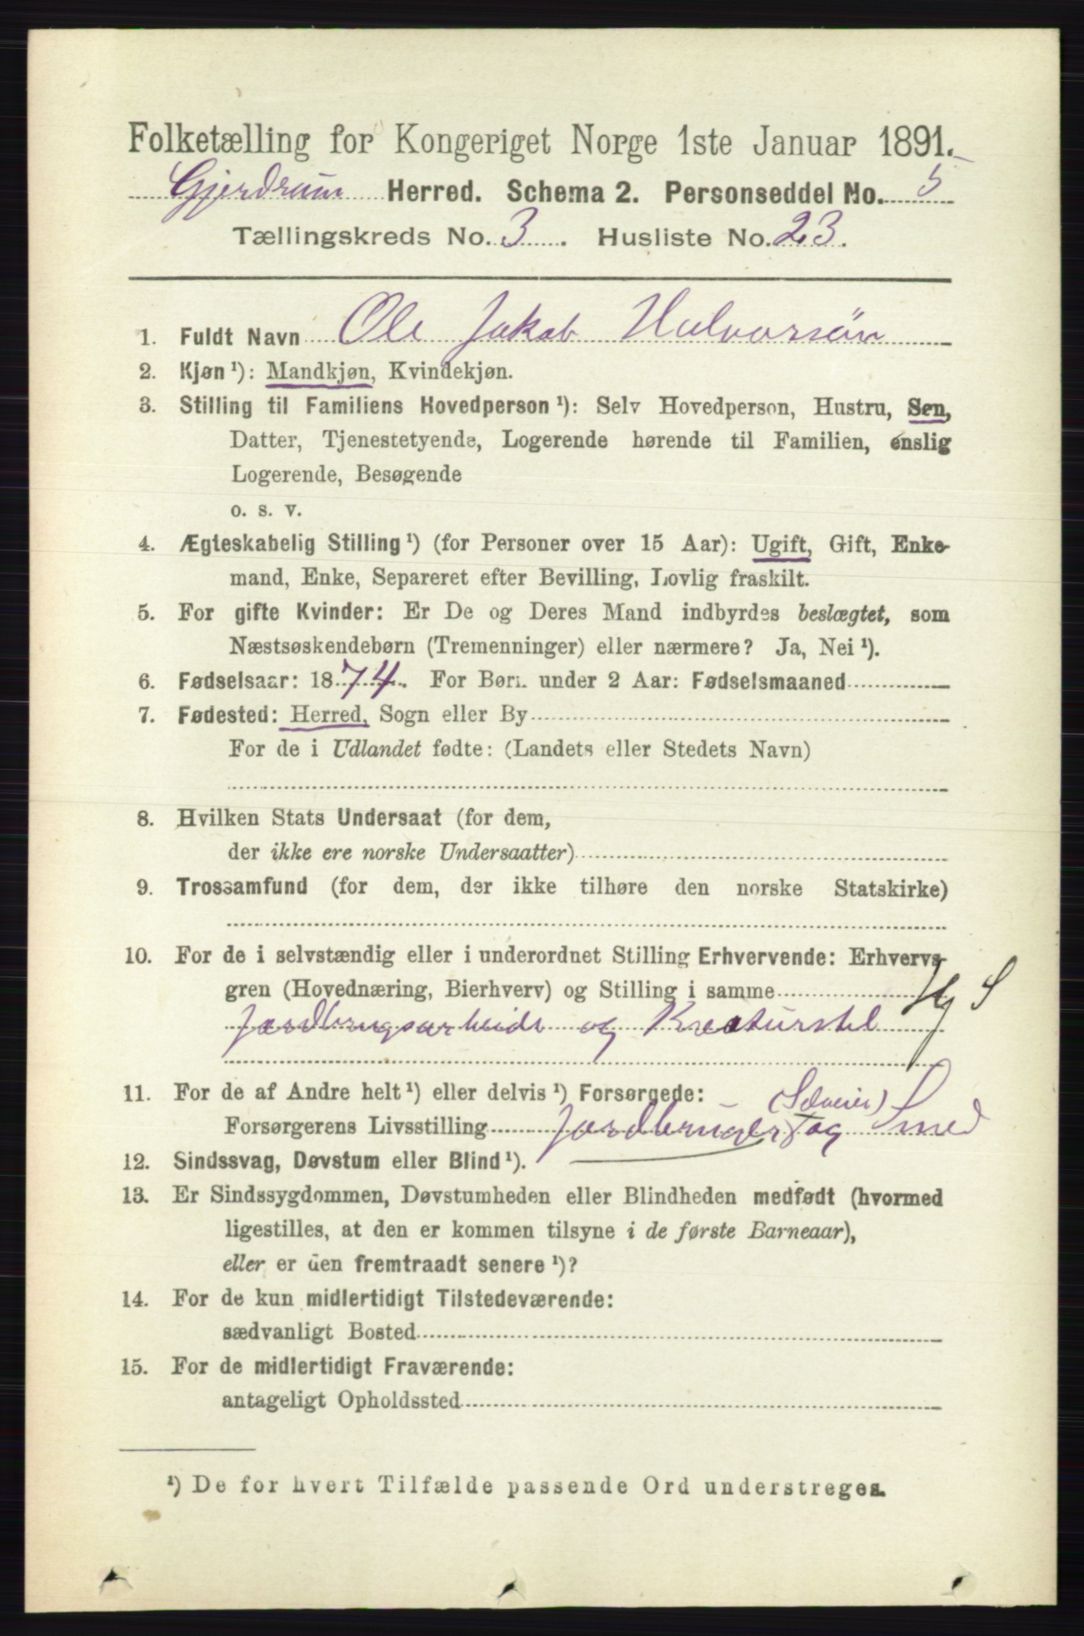 Folketælling for Kongeriget Norge 1ste Januar 1891.
Gjerdrum Herred. Schema 2. Personseddel No. 5
Tællingskreds No. 3. Husliste No. 23.
1. Fuldt Navn Ole Jakob Halvorsøn
2. Kjøn ¹): Mandkjøn, Kvindekjøn.
3. Stilling til Familiens Hovedperson ¹): Selv Hovedperson, Hustru, Søn,
Datter, Tjenestetyende, Logerende hørende til Familien, enslig
Logerende, Besøgende
o. s. v.
4. Ægteskabelig Stilling ¹) (for Personer over 15 Aar): Ugift, Gift, Enke-
mand, Enke, Separeret efter Bevilling, Lovlig fraskilt.
5. For gifte Kvinder: Er De og Deres Mand indbyrdes beslægtet, som
Næstsøskendebørn (Tremenninger) eller nærmere? Ja, Nei ¹).
6. Fødselsaar: 1874. For Børn under 2 Aar: Fødselsmaaned
7. Fødested: Herred, Sogn eller By
For de i Udlandet fødte: (Landets eller Stedets Navn)
8. Hvilken Stats Undersaat (for dem,
der ikke ere norske Undersaatter)
9. Trossamfund (for dem, der ikke tilhøre den norske Statskirke)
10. For de i selvstændig eller i underordnet Stilling Erhvervende: Erhvervs-
gren (Hovednæring, Bierhverv) og Stilling i samme Hj S
Jordbrugsarbeide og Kreaturstel
11. For de af Andre helt ¹) eller delvis ¹) Forsørgede: (Selveier)
Forsørgerens Livsstilling Jordbruger og Smed
12. Sindssvag, Døvstum eller Blind ¹).
13. Er Sindssygdommen, Døvstumheden eller Blindheden medfødt (hvormed
ligestilles, at den er kommen tilsyne i de første Barneaar),
eller er den fremtraadt senere ¹)?
14. For de kun midlertidigt Tilstedeværende:
sædvanligt Bosted
15. For de midlertidigt Fraværende:
antageligt Opholdssted
¹) De for hvert Tilfælde passende Ord understreges.